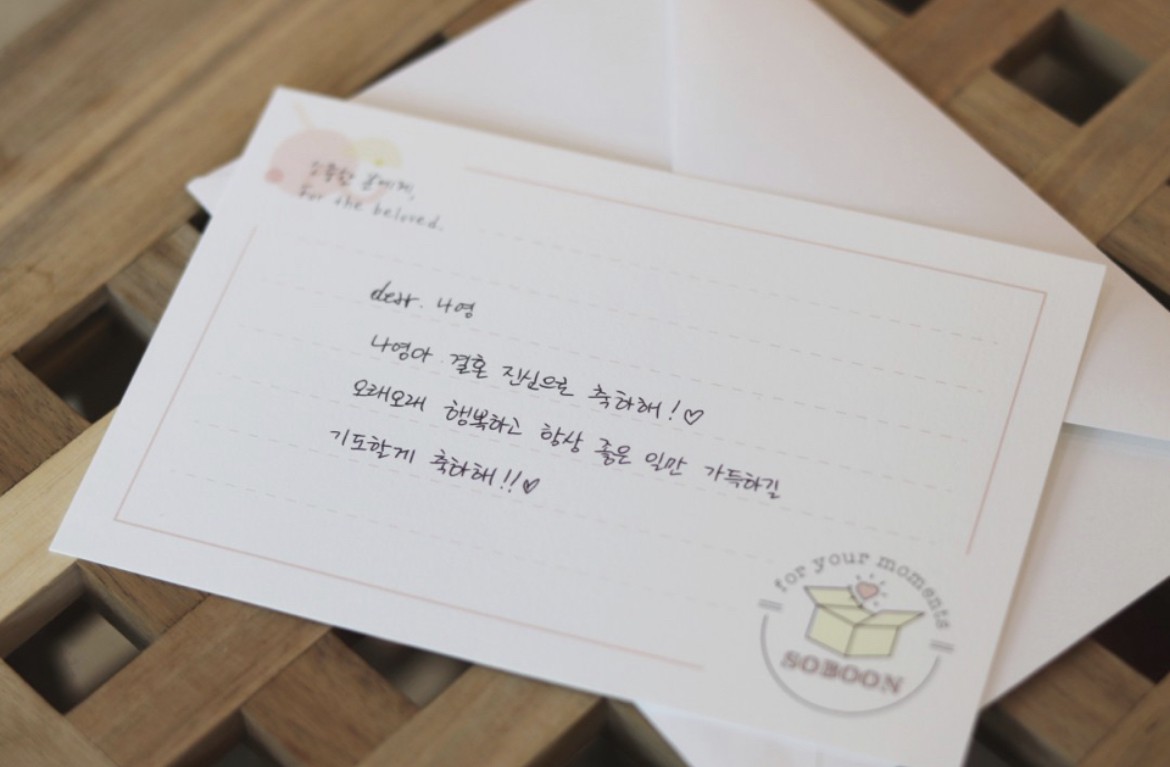 소중한 분에게,
For the beloved.
dear. 나영
나영아. 결혼 진심으로 축하해!♡
오래오래 행복하고 항상 좋은 일만 가득하길
기도할게 축하해!!♡
for your moments
SOBOON